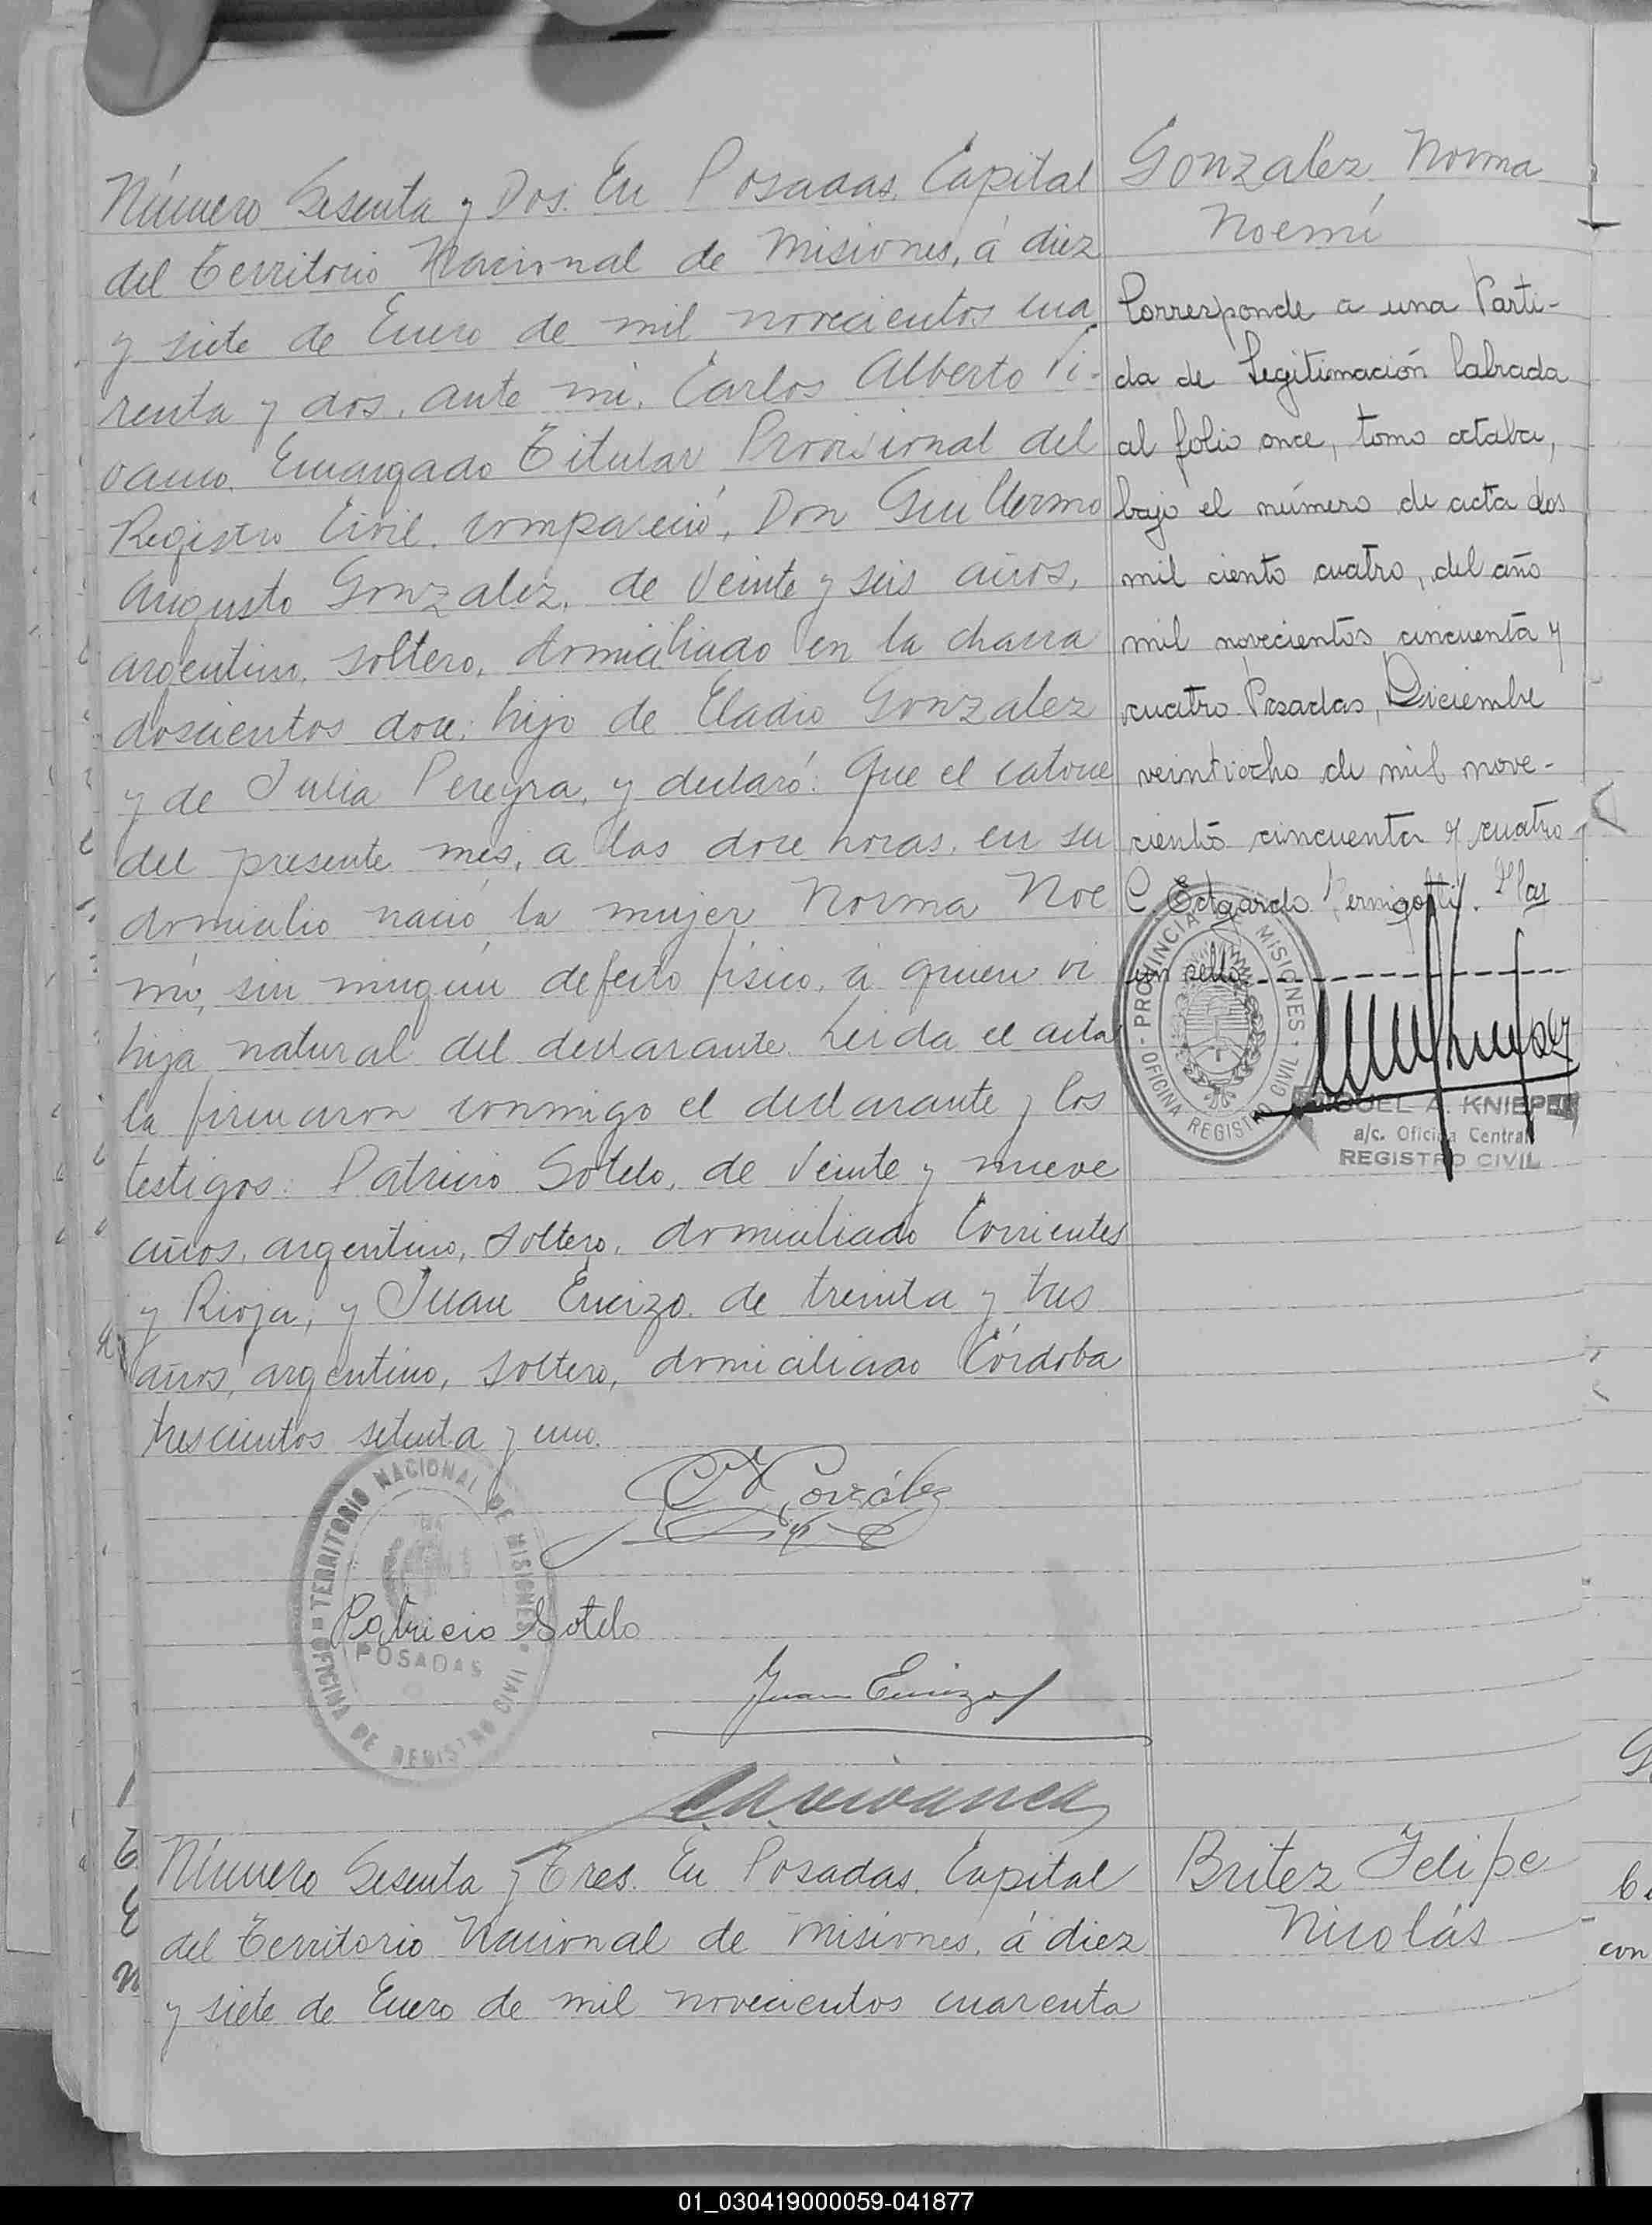 Número Sesenta y Dos. En Posadas, Capital
del Territorio Nacional de Misiones, á diez
y siete de Enero de mil novecientos cua
renta y dos, ante mi, Carlos Alberto Vi-
vanco, Encargado Titular Provisional del
Registro Civil, compareció, Don Guillermo
Augusto Gonzalez, de Veinte y seis años,
argentino, soltero, domiciliado en la chacra
doscientos doce; hijo de Eladio Gonzalez
y de Julia Pereyra, y declaró: Que el catorce
del presente mes, a las doce horas, en su
domicilio nació la mujer Norma Noe
mí, sin ningún defecto físico, á quien vi
hija natural del declarante. Leida el acta
la firmaron conmigo el declarante y los
testigos: Patricio Sotelo, de Veinte y nueve
años, argentino, soltero, domiciliado Corrientes
y Rioja, y Juan Encizo, de treinta y tres
años, argentino, soltero, domiciliado Córdoba
trescientos setenta y uno.
González
TERRITORIO NACIONAL DE MISIONES
OFICINA DE REGISTRO CIVIL
POSADAS
Patricio Sotelo
Juan Encizo
Gonzalez Norma
Noemí
Corresponde a una Parti-
da de Legitimación labrada
al folio once, tomo octabo,
bajo el número de acta dos
mil ciento cuatro, del año
mil novecientos cincuenta y
cuatro Posadas, Diciembre
veintiocho de mil nove-
ciento cincuenta y cuatro
C. Edgardo Hay
un sello
PROVINCIA MISIONES
OFICINA REGISTRO CIVIL
MIGUEL A. KNIEPER
a/c. Oficina Central
REGISTRO CIVIL
Número Sesenta y Tres. En Posadas, Capital
del Territorio Nacional de Misiones, á diez
y siete de Enero de mil novecientos cuarenta
Britez Felipe
Nicolás
con
01_030419000059-041877